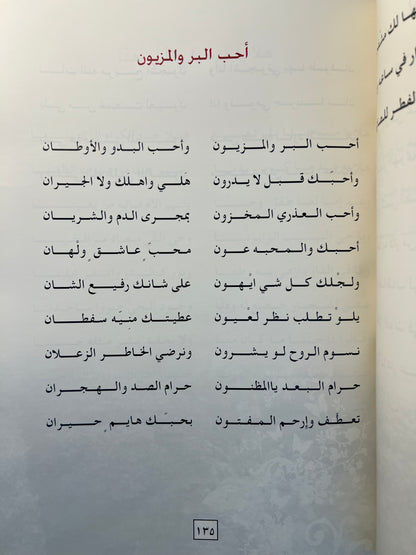 أحب البر والمزيون
أحب البر والمزيون وأحب البدو والأوطان
وأحبّك قبل لا يدرون هَلي واهلك ولا الجيران
وأحب العذري المخزون بمجرى الدم والشريان
أحبك والمحبه عون محبّ ٍ عاشق ٍ ولْهان
ولجْلك كل شي ايْهون على شانك رفيع الشان
يلوْ تطلب نظر لعْيون عطيتك منِيّه سفطان
نسوم الروح لو يشرون ونرضي الخاطر الزعلان
حرام البعد ياالمظنون حرام الصد والهجران
تعطّف وإرحم المفتون بحبّك هايم ٍ حيران
١٣٥
ها لك
ار في
لفطر